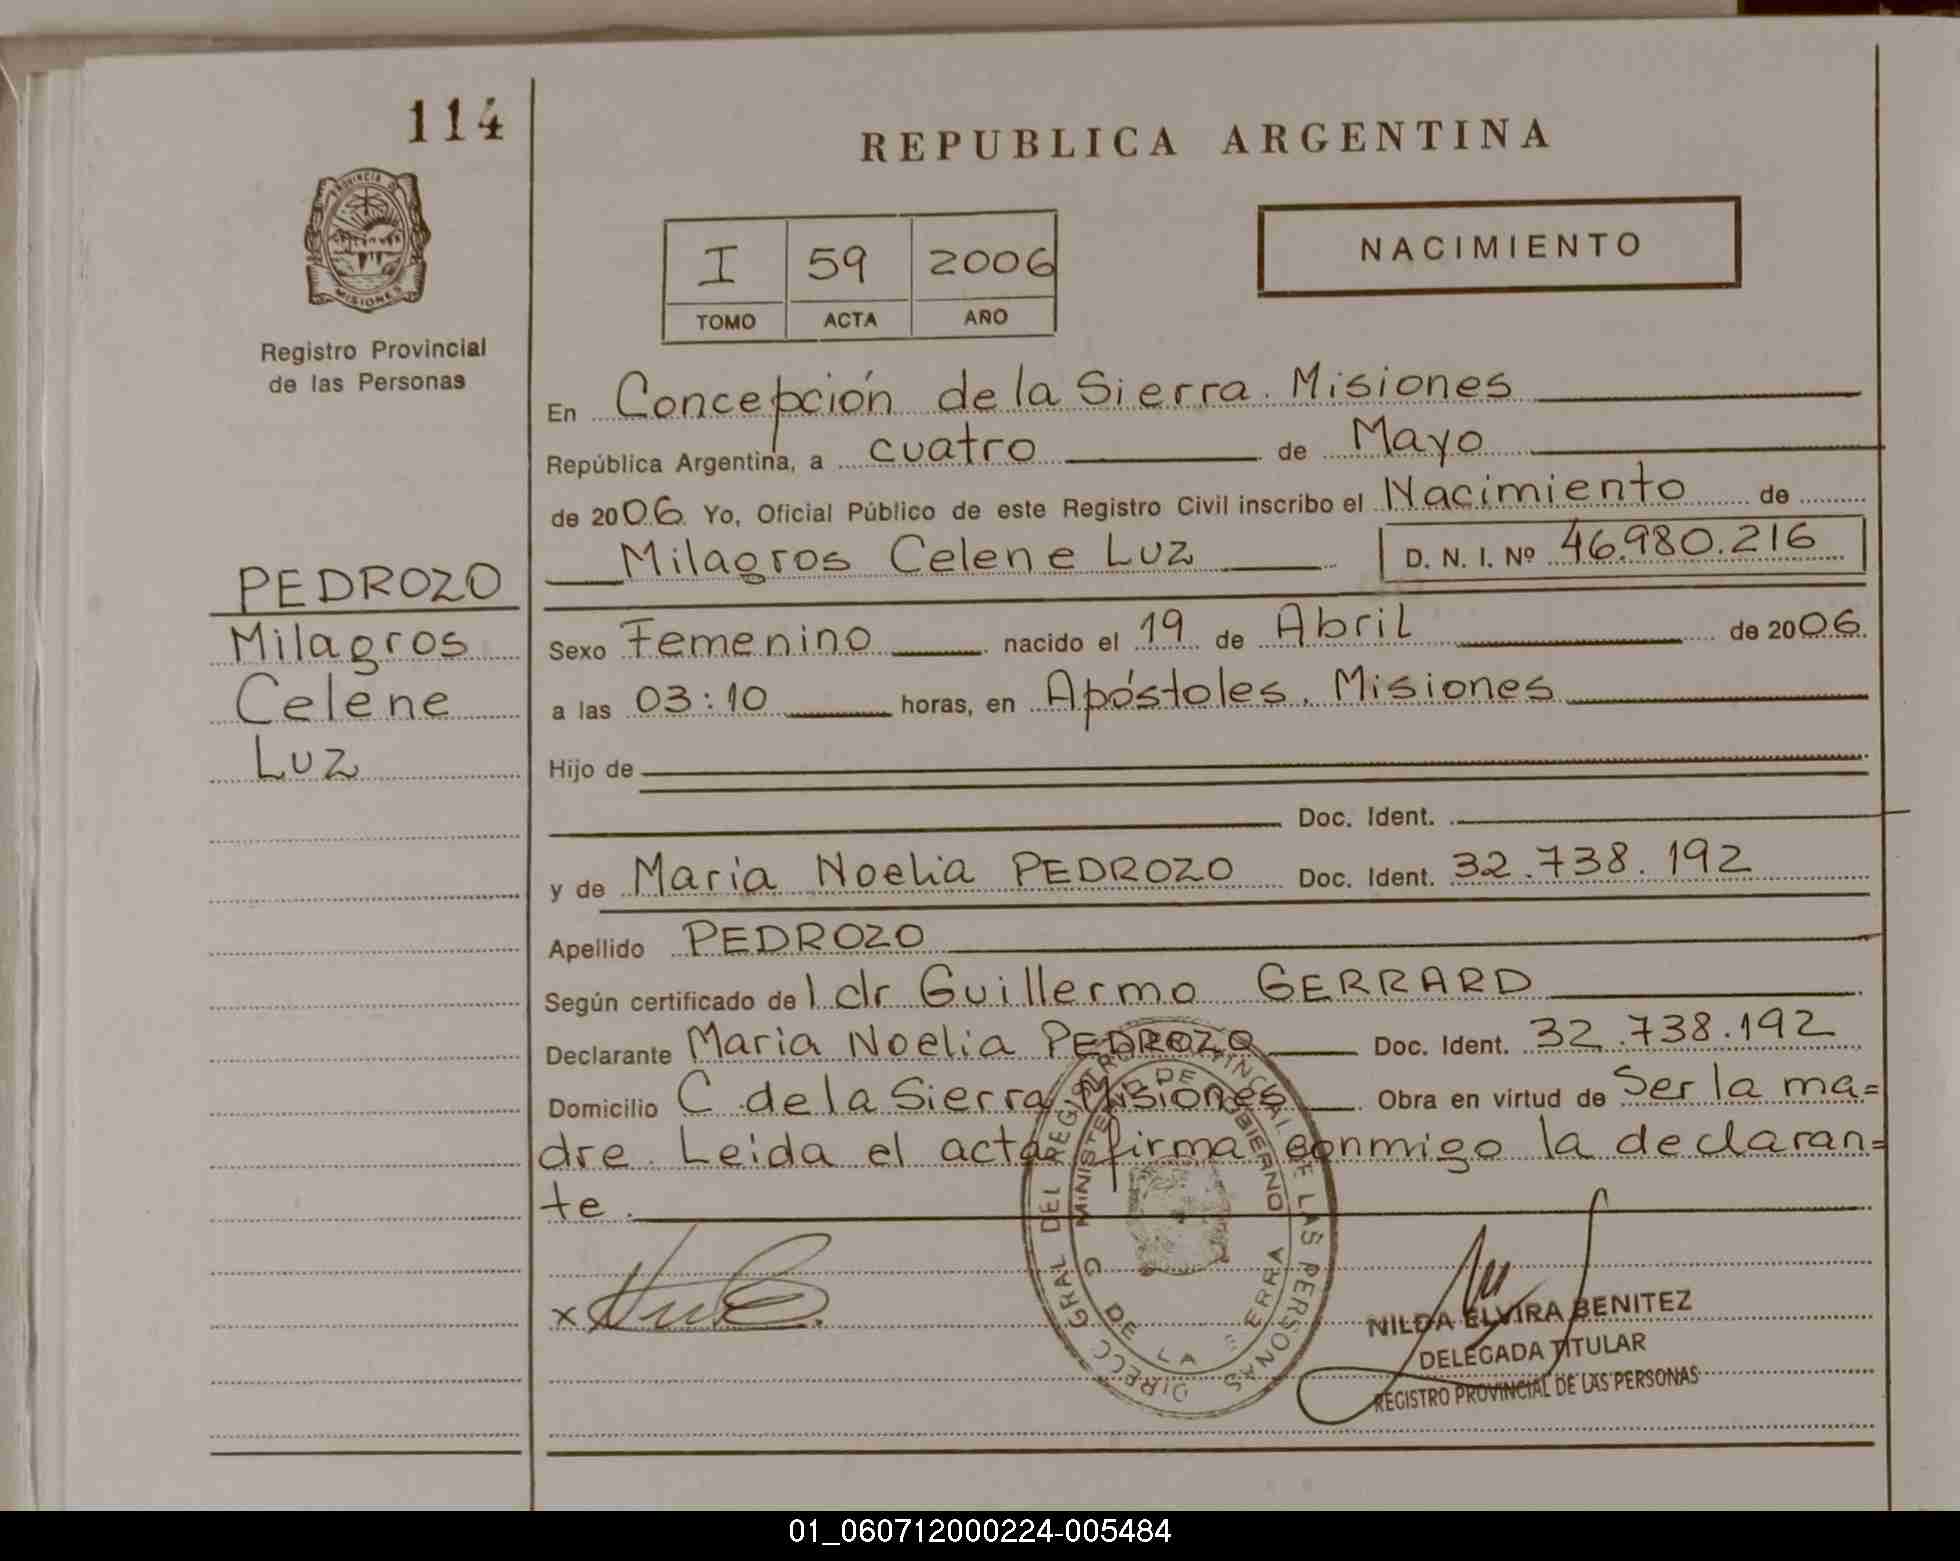 114
REPUBLICA ARGENTINA
PROVINCIA DE
MISIONES
I 59 2006
TOMO ACTA AÑO
NACIMIENTO
Registro Provincial
de las Personas
En Concepción de la Sierra. Misiones
República Argentina, a cuatro de Mayo
de 2006. Yo, Oficial Público de este Registro Civil inscribo el Nacimiento de
Milagros Celene Luz D. N. I. Nº 46.980.216
PEDROZO
Milagros
Celene
Luz
Sexo Femenino nacido el 19 de Abril de 2006.
a las 03:10 horas, en Apóstoles. Misiones
Hijo de
Doc. Ident.
y de Maria Noelia PEDROZO Doc. Ident. 32.738.192
Apellido PEDROZO
Según certificado de l dr Guillermo GERRARD
Declarante Maria Noelia PEDROZO Doc. Ident. 32.738.192
Domicilio C. de la Sierra. Misiones Obra en virtud de Ser la ma=
dre. Leida el acta firma conmigo la declaran=
te.
DIRECC GRAL DEL REGISTRO PROVINCIAL DE LAS PERSONAS
MINISTERIO DE GOBIERNO
DE LA
x
NILDA ELVIRA BENITEZ
DELEGADA TITULAR
REGISTRO PROVINCIAL DE LAS PERSONAS
01_060712000224-005484